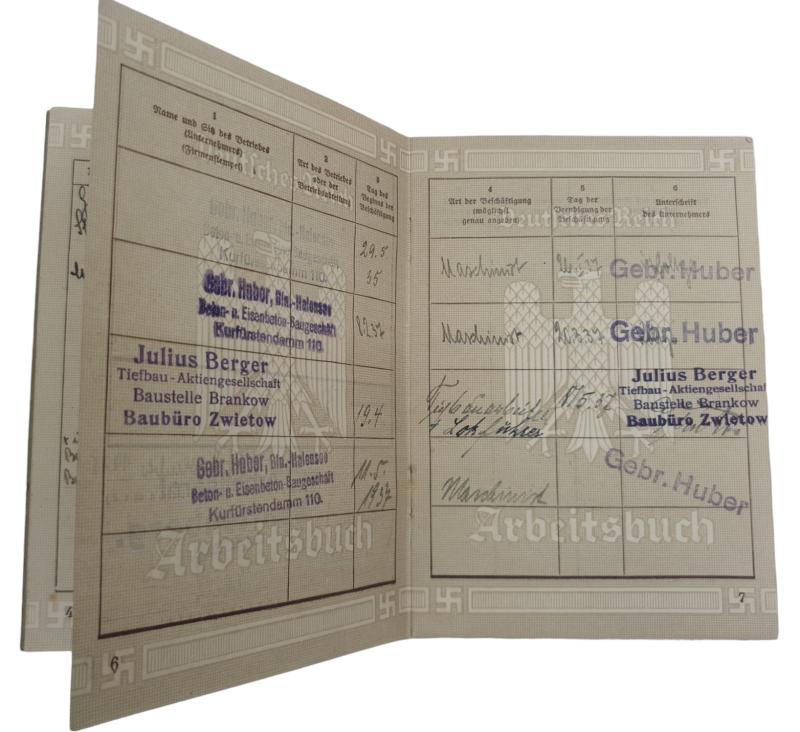 1
Name und Sitz des Betriebes
(Unternehmers)
(Firmenstempel)
2
Art des Betriebes
oder der
Betriebsabteilung
3
Tag des
Beginns der
Beschäftigung
Gebr. Huber, Bln.-Halensee
Beton- u. Eisenbeton-Baugeschäft
Kurfürstendamm 110.
29.5
35
Gebr. Huber, Bln.-Halensee
Beton- u. Eisenbeton-Baugeschäft
Kurfürstendamm 110.
Julius Berger
Tiefbau-Aktiengesellschaft
Baustelle Brankow
Baubüro Zwietow
19.4
Gebr. Huber, Bln.-Halensee
Beton- u. Eisenbeton-Baugeschäft
Kurfürstendamm 110.
11.5.
1937
Deutsches Reich
Arbeitsbuch
6
4
Art der Beschäftigung
(möglichst
genau angeben)
5
Tag der
Beendigung der
Beschäftigung
6
Unterschrift
des Unternehmers
Maschinist
Gebr. Huber
Maschinist
20.3.37
Gebr. Huber
Tiefbauarbeiter
Lokführer
Julius Berger
Tiefbau-Aktiengesellschaft
Baustelle Brankow
Baubüro Zwietow
Maschinist
Gebr. Huber
Deutsches Reich
Arbeitsbuch
7